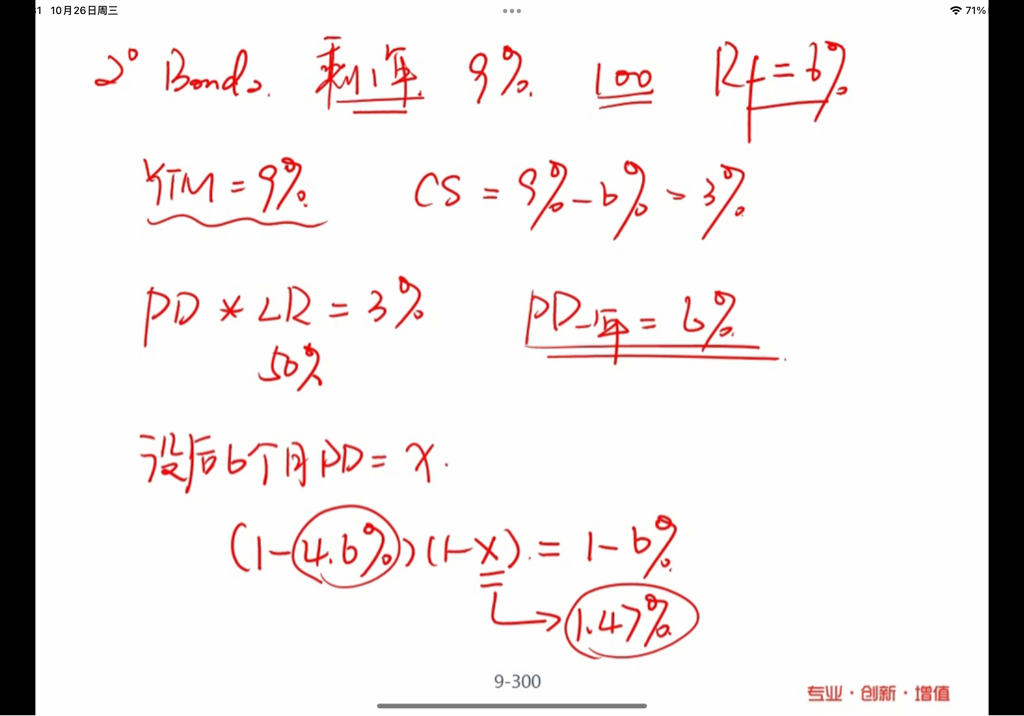 31 10月26日周三 71%
2° Bonds. 剩1年 9%. 100 Rf=6%
YTM = 9%. CS = 9%-6% = 3%.
PD * LR = 3% PD一年 = 6%.
50%
设后6个月PD = x.
(1-4.6%)(1-x). = 1-6%.
1.47%
9-300
专业·创新·增值